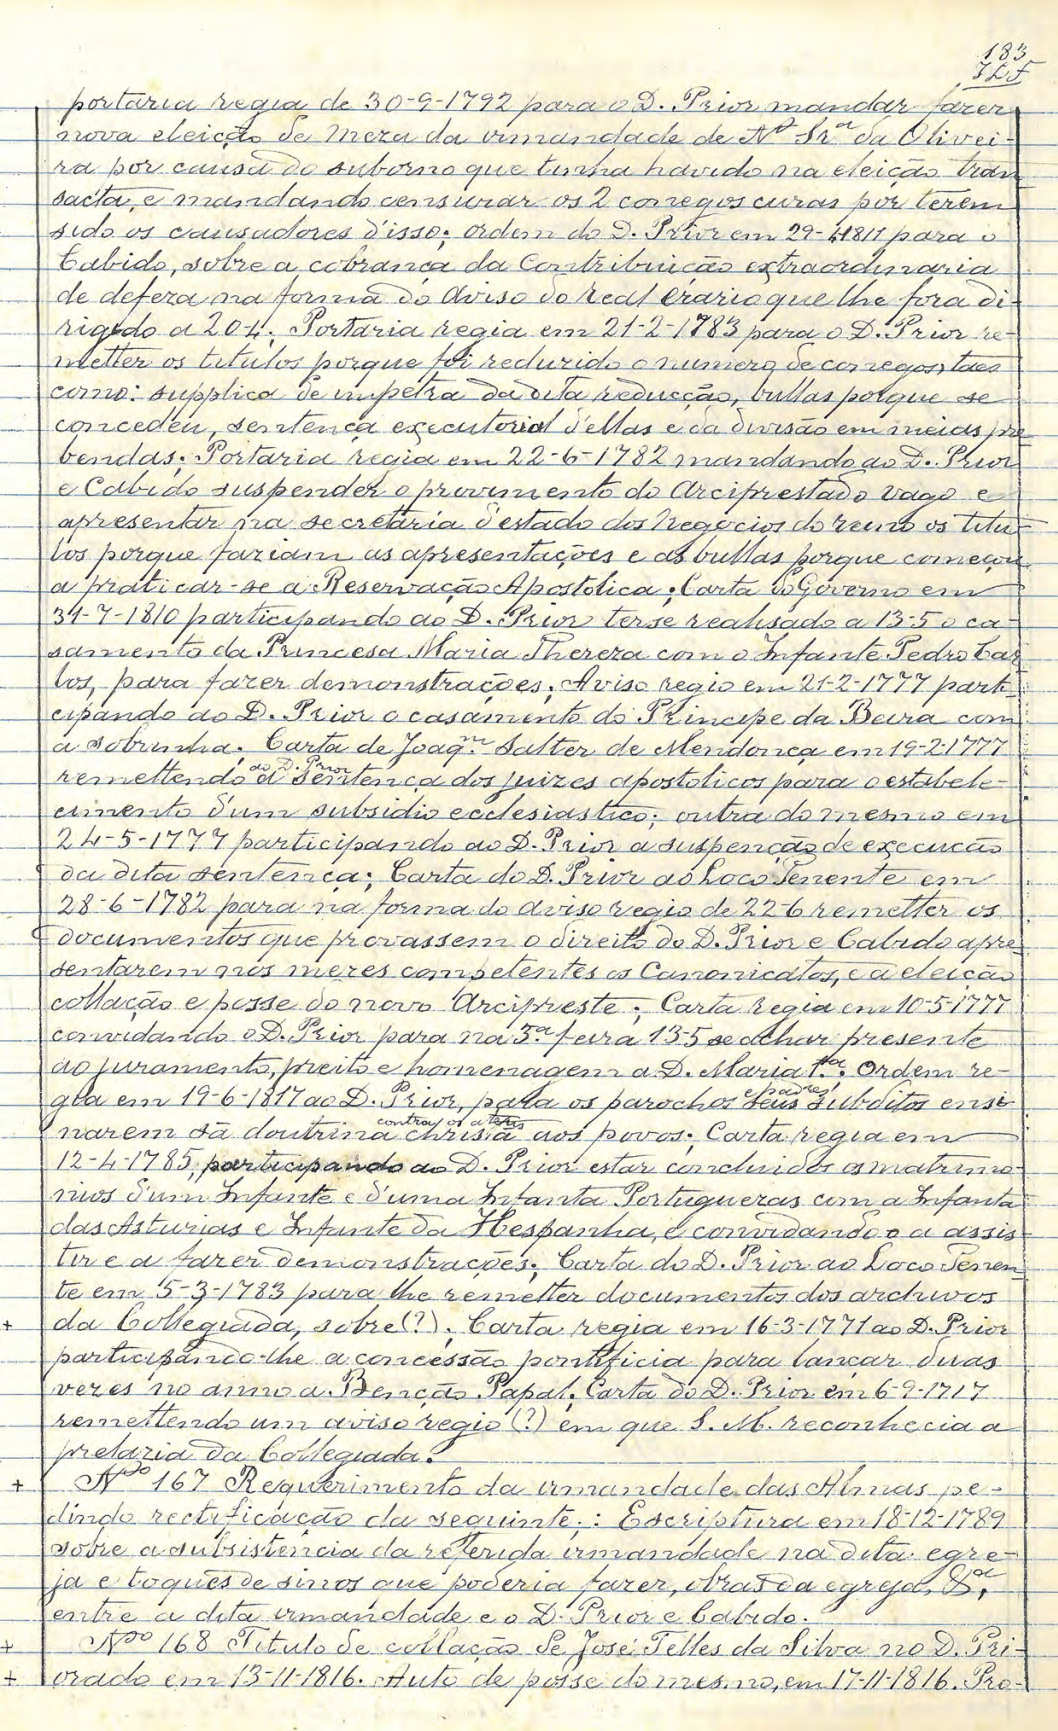 183
portaria regia de 30-9-1792 para o D. Prior mandar fazer
nova eleição de Meza da irmandade de Nª Srª da Olivei-
ra por causa do suborno que tinha havido na eleição tran
sacta, e mandando censurar os 2 conegos curas por terem
sido os causadores d'isso; ordem do D. Prior em 29-4-1811 para o
Cabido, sobre a cobrança da Contribuição extraordinaria
de defeza na forma do Aviso do real Erario que lhe fora di-
rigido a 20-4; Portaria regia em 21-2-1783 para o D. Prior re-
metter os titulos porque foi reduzido o numero de conegos, taes
como: supplica de impetra da dita reducção, bullas porque se
concedeu, sentença executorial d'ellas e da divisão em meias pre
bendas; Portaria regia em 22-6-1782 mandando ao D. Prior
e Cabido suspender o provimento do Arciprestado vago e
apresentar na secretaria d'estado dos Negocios do reino os titu-
los porque faziam as apresentações e as bullas porque começou
a praticar-se a Reservação Apostolica; Carta do Governo em
31-7-1810 participando ao D. Prior ter-se realisado a 13-5 o ca-
samento da Princesa Maria Thereza com o Infante Pedro Car
los, para fazer demonstrações; Aviso regio em 21-2-1777 parti-
cipando ao D. Prior o casamento do Principe da Beira com
a sobrinha. Carta de Joaqm Salter de Mendonça em 19-2-1777
remettendo ao D. Prior a sentença dos juizes apostolicos para o estabele-
cimento d'um subsidio ecclesiastico; outra do mesmo em
24-5-1777 participando ao D. Prior a suspenção de execução
da dita sentença; Carta do D. Prior ao Loco Tenente em
28-6-1782 para na forma do aviso regio de 22-6 remetter os
documentos que provassem o direito do D. Prior e Cabido apre
sentarem nos mezes competentes os Canonicatos, e a eleição
collação e posse do novo Arcipreste; Carta regia em 10-5-1777
convidando o D. Prior para na 3ª feira 13-5 se achar presente
ao juramento, preito e homenagem a D. Maria 1ª; Ordem re-
gia em 19-6-1817 ao D. Prior, para os parochos e padres seus subditos ensi-
narem sã doutrina christã contra os atheos aos povos; Carta regia em
12-4-1785, participando ao D. Prior estar concluidos os matrimo-
nios d'um Infante e d'uma Infanta Portuguezas com a Infanta
das Asturias e Infante da Hespanha, e convidando-o a assis
tir e a fazer demonstrações; Carta do D. Prior ao Loco Tenen
te em 5-3-1783 para lhe remetter documentos dos archivos
+ da Collegiada, sobre (?); Carta regia em 16-3-1771 ao D. Prior
participando-lhe a concessão pontificia para lançar duas
vezes no anno a Benção Papal; Carta do D. Prior em 6-9-1717
remettendo um aviso regio (?) em que S. M. reconhecia a
prelazia da Collegiada.
+ Nº 167 Requerimento da irmandade das Almas pe-
dindo rectificação da seguinte: Escriptura em 18-12-1789
sobre a subsistencia da referida irmandade na dita egre-
ja e toques de sinos que poderia fazer, obras da egreja, &ª,
entre a dita irmandade e o D. Prior e Cabido.
+ Nº 168 Titulo de collação de José Telles da Silva no D. Pri-
+ orado em 13-11-1816. Auto de posse do mesmo, em 17-11-1816. Pro-